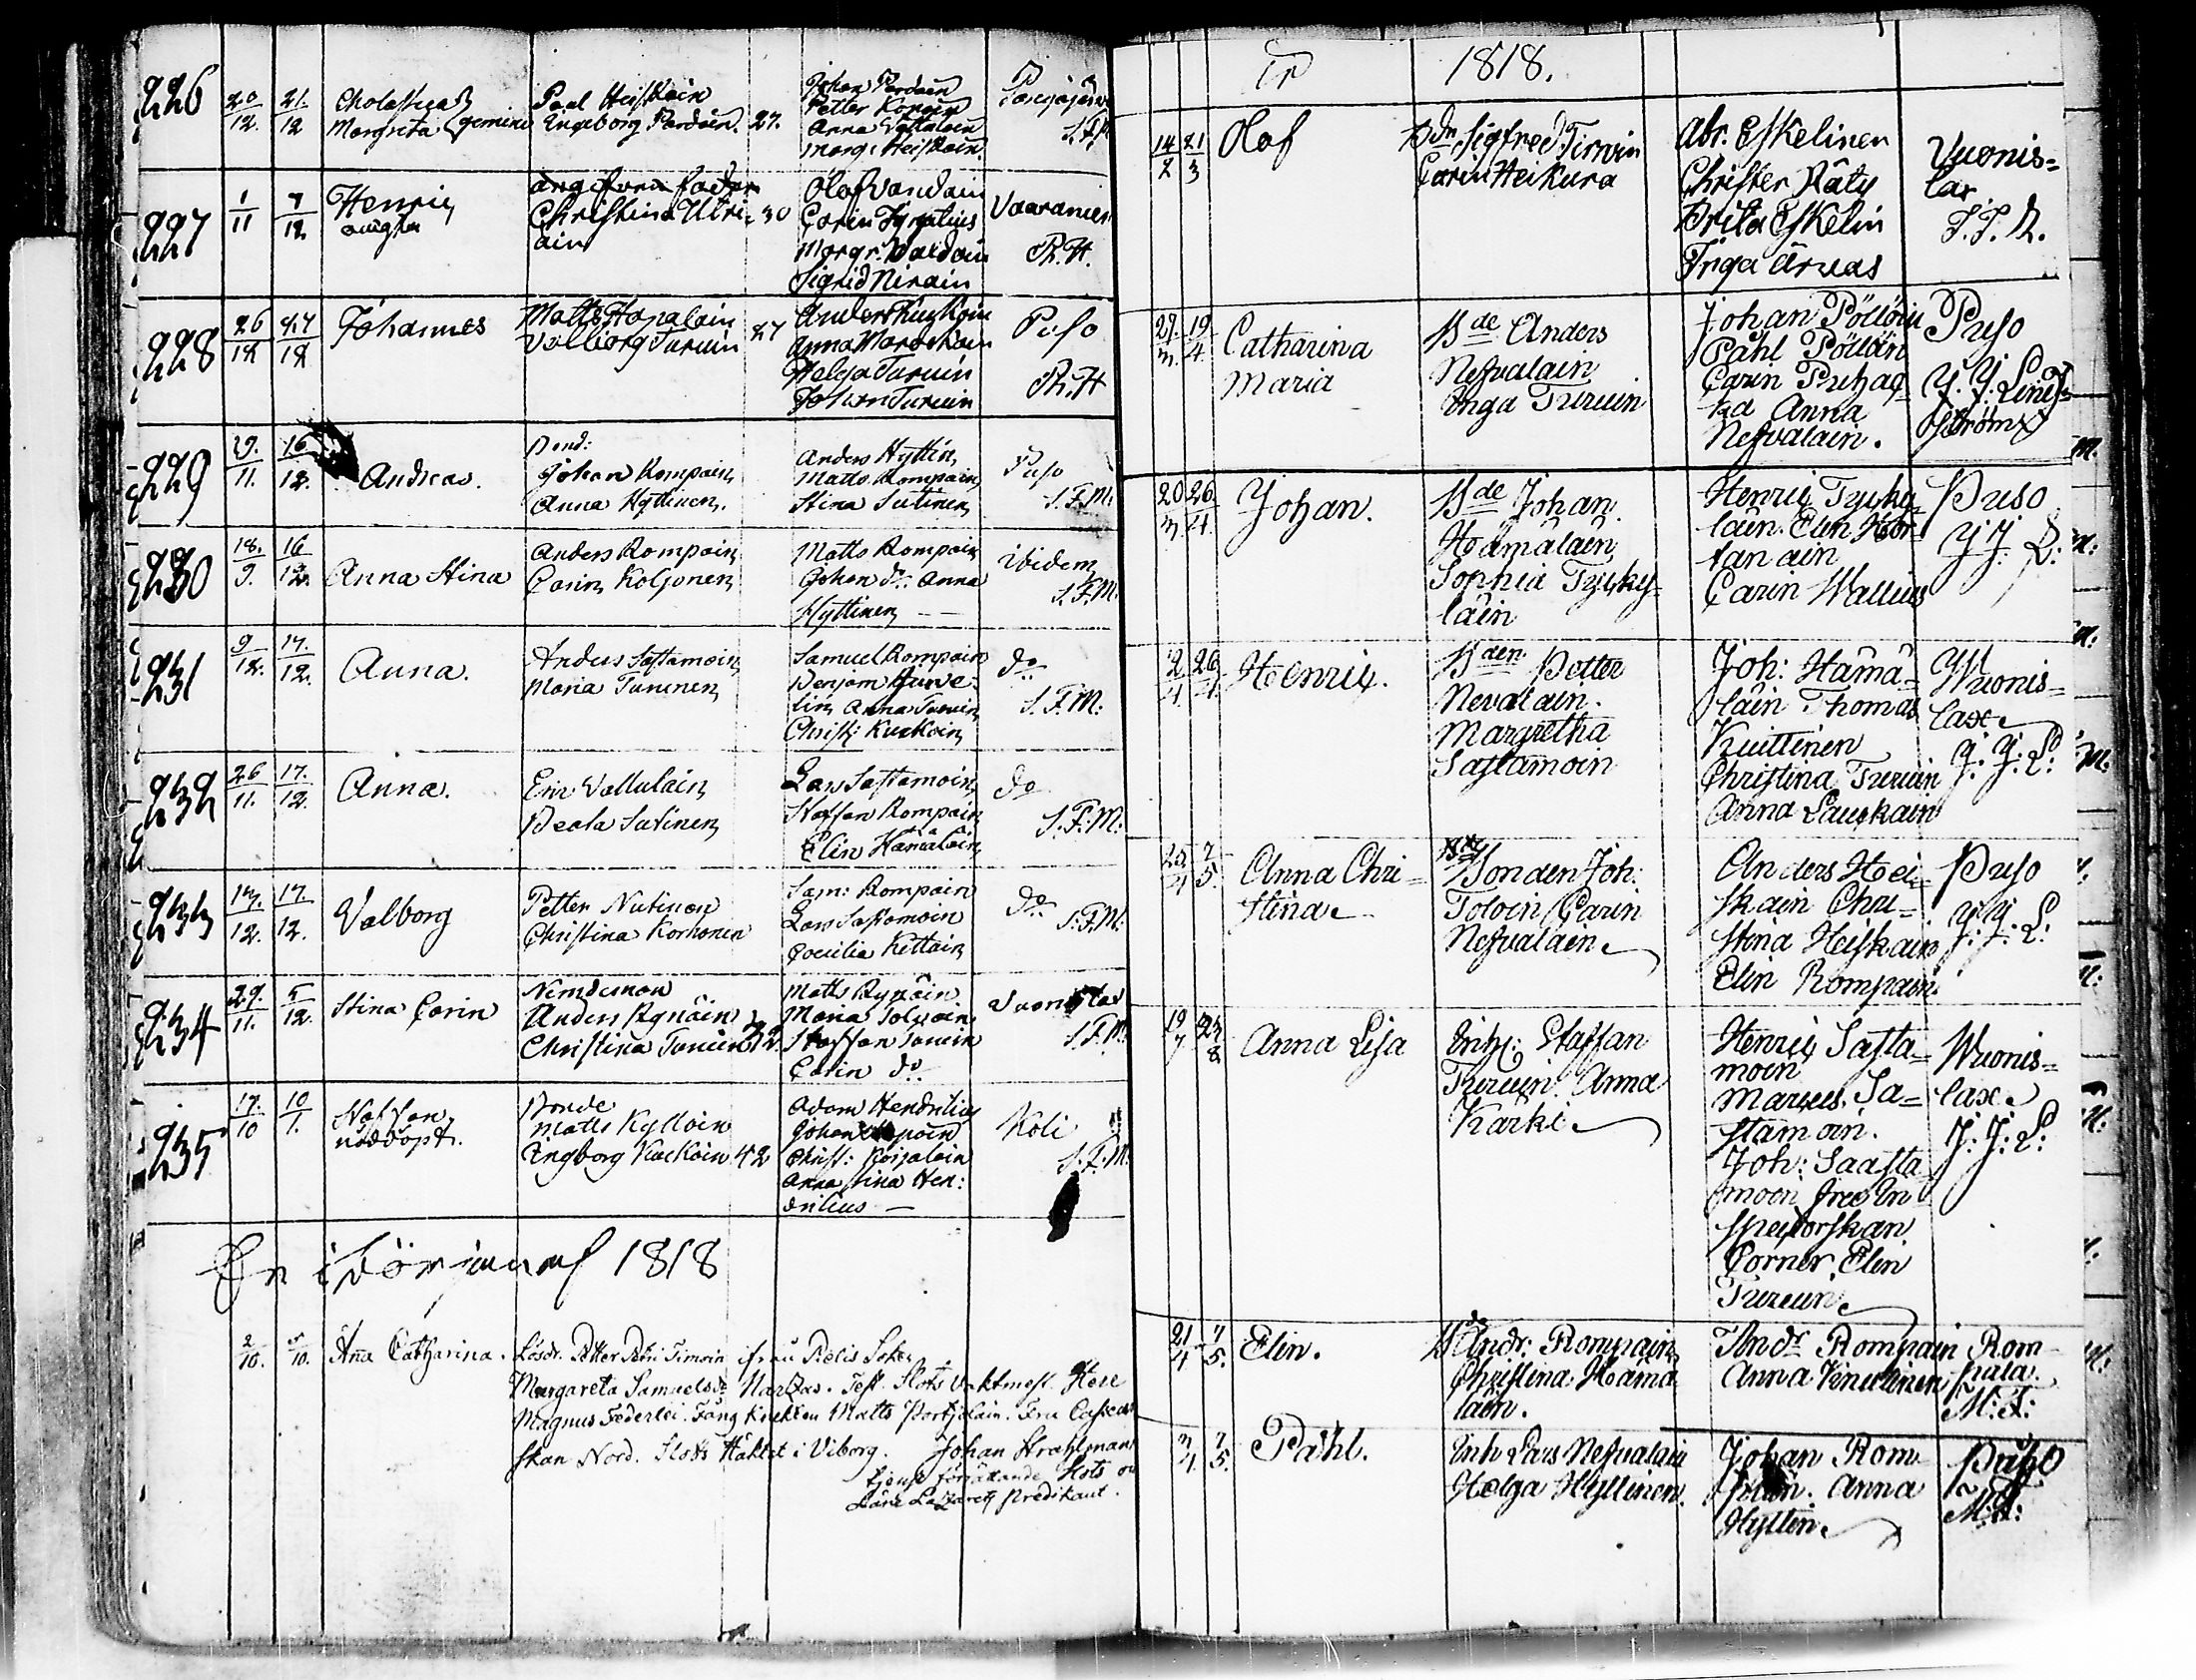 226 20/12. 21./12 Cholastica
Margreta gemini
Paul Heiskain
Ingeborg Pardain. 27.
Johan Pardain
Petter Konoin
Anna
Marg: Heiskain.
227 1/11 7/12 Henric
oägta
fader
Christina Utri-
ain 30
Olof Vandain
Carin Ignatius
Margr.
Sigrid Nirain
Vaaranien
Th. H.
228 26/12 27/12 Johannes
Matts Hapalain
Valborg Turuin 27
Anders Kuikoin
Anna
Helga Turuin
Johan Turuin
Puso
Th. H
229 29./11. 16/12. Andreas.
Bond:
Johan Rompain
Anna Hyttinen.
Anders Hyttin
Matts Rompain
Stina Sutinen
Puso
S.F.M.
230 18./9. 16/12. Anna Stina
Anders Rompain
Carin Koljonen
Matts Rompain
Johan do. Anna
Hyttinen
ibidem
S.F.M.
231 9/12. 17./12. Anna.
Anders Sastamoin
Maria Turunen
Samuel Rompain
Benjam Huve-
lin Anna Turuin
Christ: Kuckoin
do
S.F.M:
232 26/11. 17./12. Anna.
Eric Vallulain
Beata Sutinen
Lars Sastamoin
Staffan Rompain
Elin Hämäläin
do
S.F.M:
233 17./12. 17./12. Valborg
Petter Nutinen
Christina Korhonen
Sam: Rompain
Lars Sastamoin
Coecilia Kettain
do
S.F.M:
234 29./11. 5/12. Stina Carin
Nemdeman
Anders Rynäin
Christina Turuin 32.
Matts Rynäin
Maria Tolvain
Staffan Turuin
Carin do.
Vuonislax
S.F.M:
235 17./10 10/1. Staffan
nöddöpt.
Bonde
Matts Kylloin
Ingborg Kuckoin 42
Adam Hendrilius
Johan
Christ: Korjalain
Anna Stina Hen:
drilius
Koli
S.F.M.
År i början af 1818
2/10. 5/10. Anna Catharina. Lösdr. Petter Petri Timoin ifrån Pielis Soken
Margareta Samuelsdr Narfas. Test. Slots Vaktmest. Herr
Magnus Federlei. Fång Knekten Matts Portjolain. Fru
skan Nord. Slotts Häktet i Viborg. Johan Strahlman
tjenst förrättande Slots o
Läns Lazarets predikant.
År 1818.
14/2 21/3 Olof
Bdn Sigfred Tirwin
Carin Heikura
Abr. Eskelinen
Christer Räty
Brita Eskelin
Inga Ärväs
Vuonis=
lax
27./3. 19/4. Catharina
Maria
Bde Anders
Nefvalain
Inga Turuin
Johan Pöllöin
Pahl Pöllöin
Carin Puhac-
ka Anna
Nefvalain.
Puso
J. J. Lind-
ström
20/3 26/4. Johan.
Bde Johan
Hämäläin
Sophia Tyyky-
läin
Henric Tyyky-
läin. Elin Kor-
tan ain
Carin Wallius
Puso
J. J. L:
2/4 26/4. Henric.
Bden Petter
Nevalain.
Margretha
Sastamoin
Joh: Hämä=
läin Thomas
Kuittinen
Christina Turuin
Anna Lauckain
Wuonis=
laxe
J. J. L:
25/4 7/5. Anna Chri=
stina
Bonden Joh:
Toloin Carin
Nefvalain
Anders Hei-
skain Chri-
stina Heiskain
Elin Rompain
Puso
J. J. L:
19/7 23/8 Anna Lisa
Inhy: Staffan
Turuin. Anna
Kärki
Henric Sasta=
moin
Marcus Sa=
stamoin.
Joh: Saasta
moin Fru In
spectorskan
Corner, Elin
Turuin
Wuonis=
laxe
J. J. L:
21/4 7/5. Elin.
Bd Andr: Rompain
Christina Hämä
läin.
Andr Rompain
Anna Venäläinen
Rom-
pala.
M. A:
3/4 7/5. Påhl.
Inh Lars Nefvalain
Helga Hyttinen.
Johan Rom
päin. Anna
Hyttin
Puso
M. A: